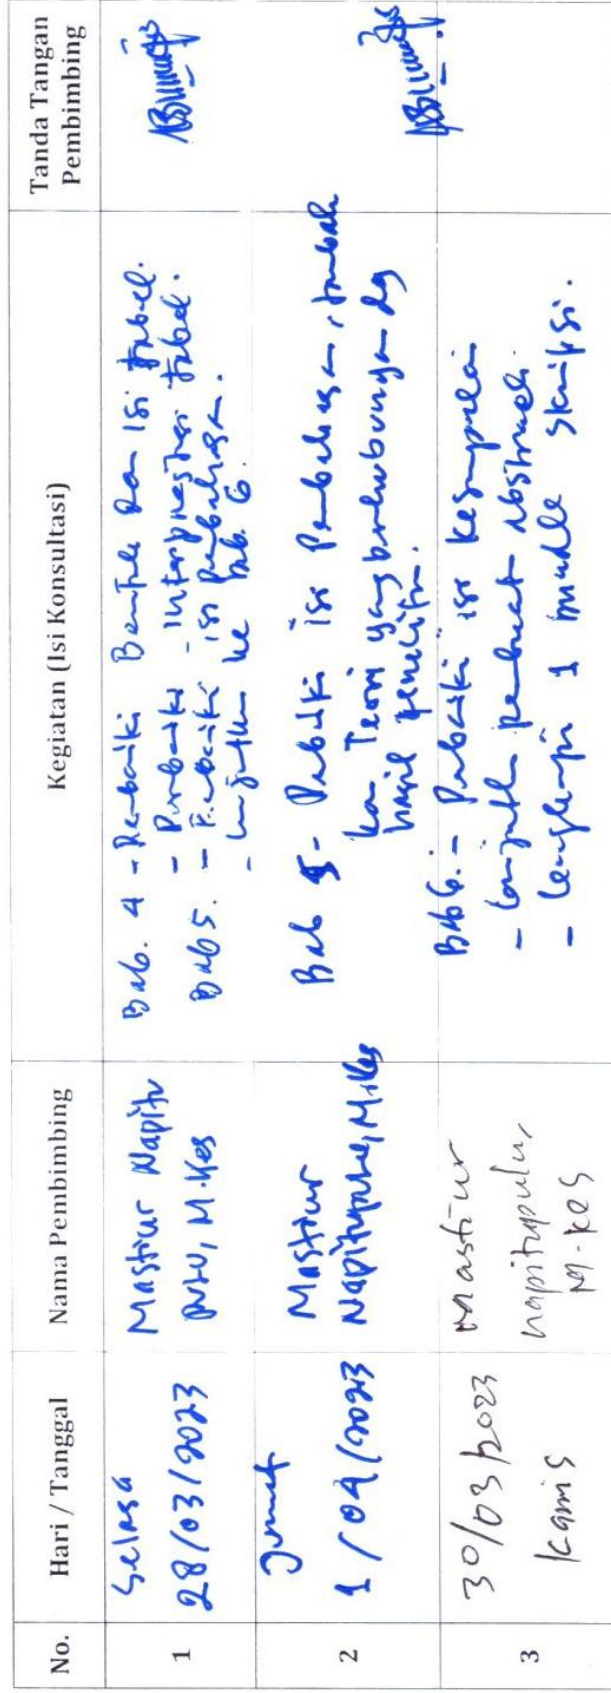 No.
Hari / Tanggal
Nama Pembimbing
Kegiatan (Isi Konsultasi)
Tanda Tangan
Pembimbing
1
Selasa
28/03/2023
Mastiur Napitu
pulu, M.Kes
Bab. 4 - Perbaiki Bentuk dan isi tabel.
- Perbaiki Interprestasi tabel.
Bab 5. - Perbaiki isi pembahasan.
- Lanjutkan ke bab. 6.
2
Jumat
1/04/2023
Mastiur
Napitupulu, M.Kes
Bab 5 - Perbaiki isi Pembahasan, tambah
kan Teori yang berhubungan dg
hasil penelitian.
3
30/03/2023
Kamis
Mastiur
napitupulu,
M.kes
Bab 6. - Perbaiki isi kesimpulan
- lanjutkan pembuat abstrack.
- lengkapi 1 bundle skripsi.